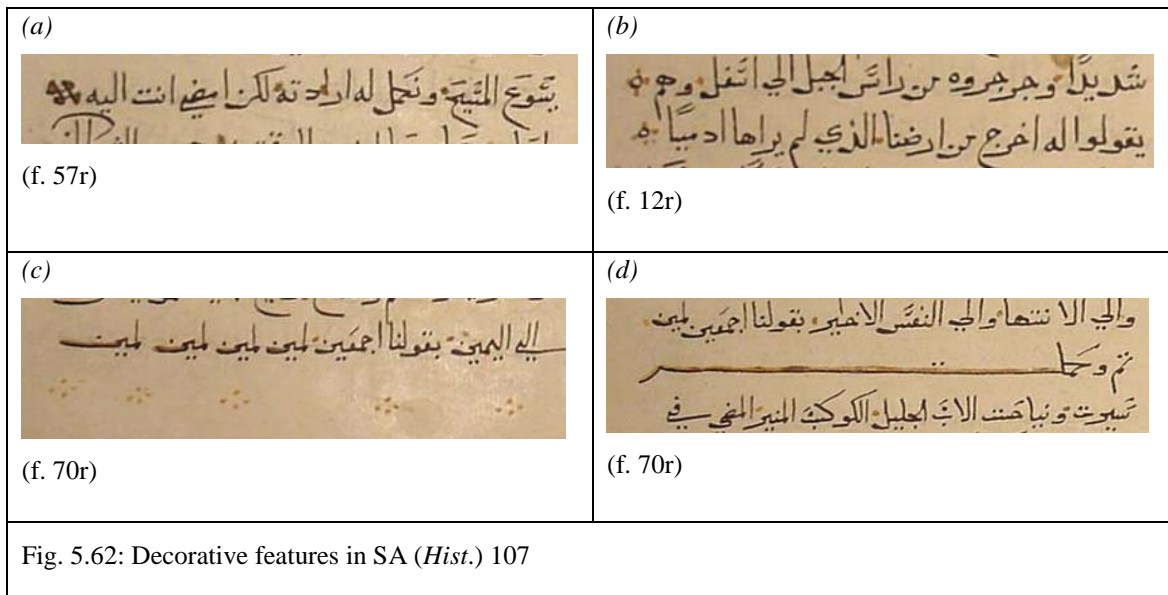 (a)
يشوع المسيح ونحمل له ارادته لكن امضي انت اليه
(f. 57r)
(b)
شديدًا وجرجروه من راس الجبل الي اسفل وهم
يقولوا له اخرج من ارضنا الذي لم يراها ادميًا
(f. 12r)
(c)
الي اليمين بقولنا اجمعين امين امين امين امين
(f. 70r)
(d)
والي الانتها والي النفس الاخير بقولنا اجمعين امين
تم وكما
نياحت الاب الجليل الكوكب المنير المضي في
(f. 70r)
Fig. 5.62: Decorative features in SA (Hist.) 107